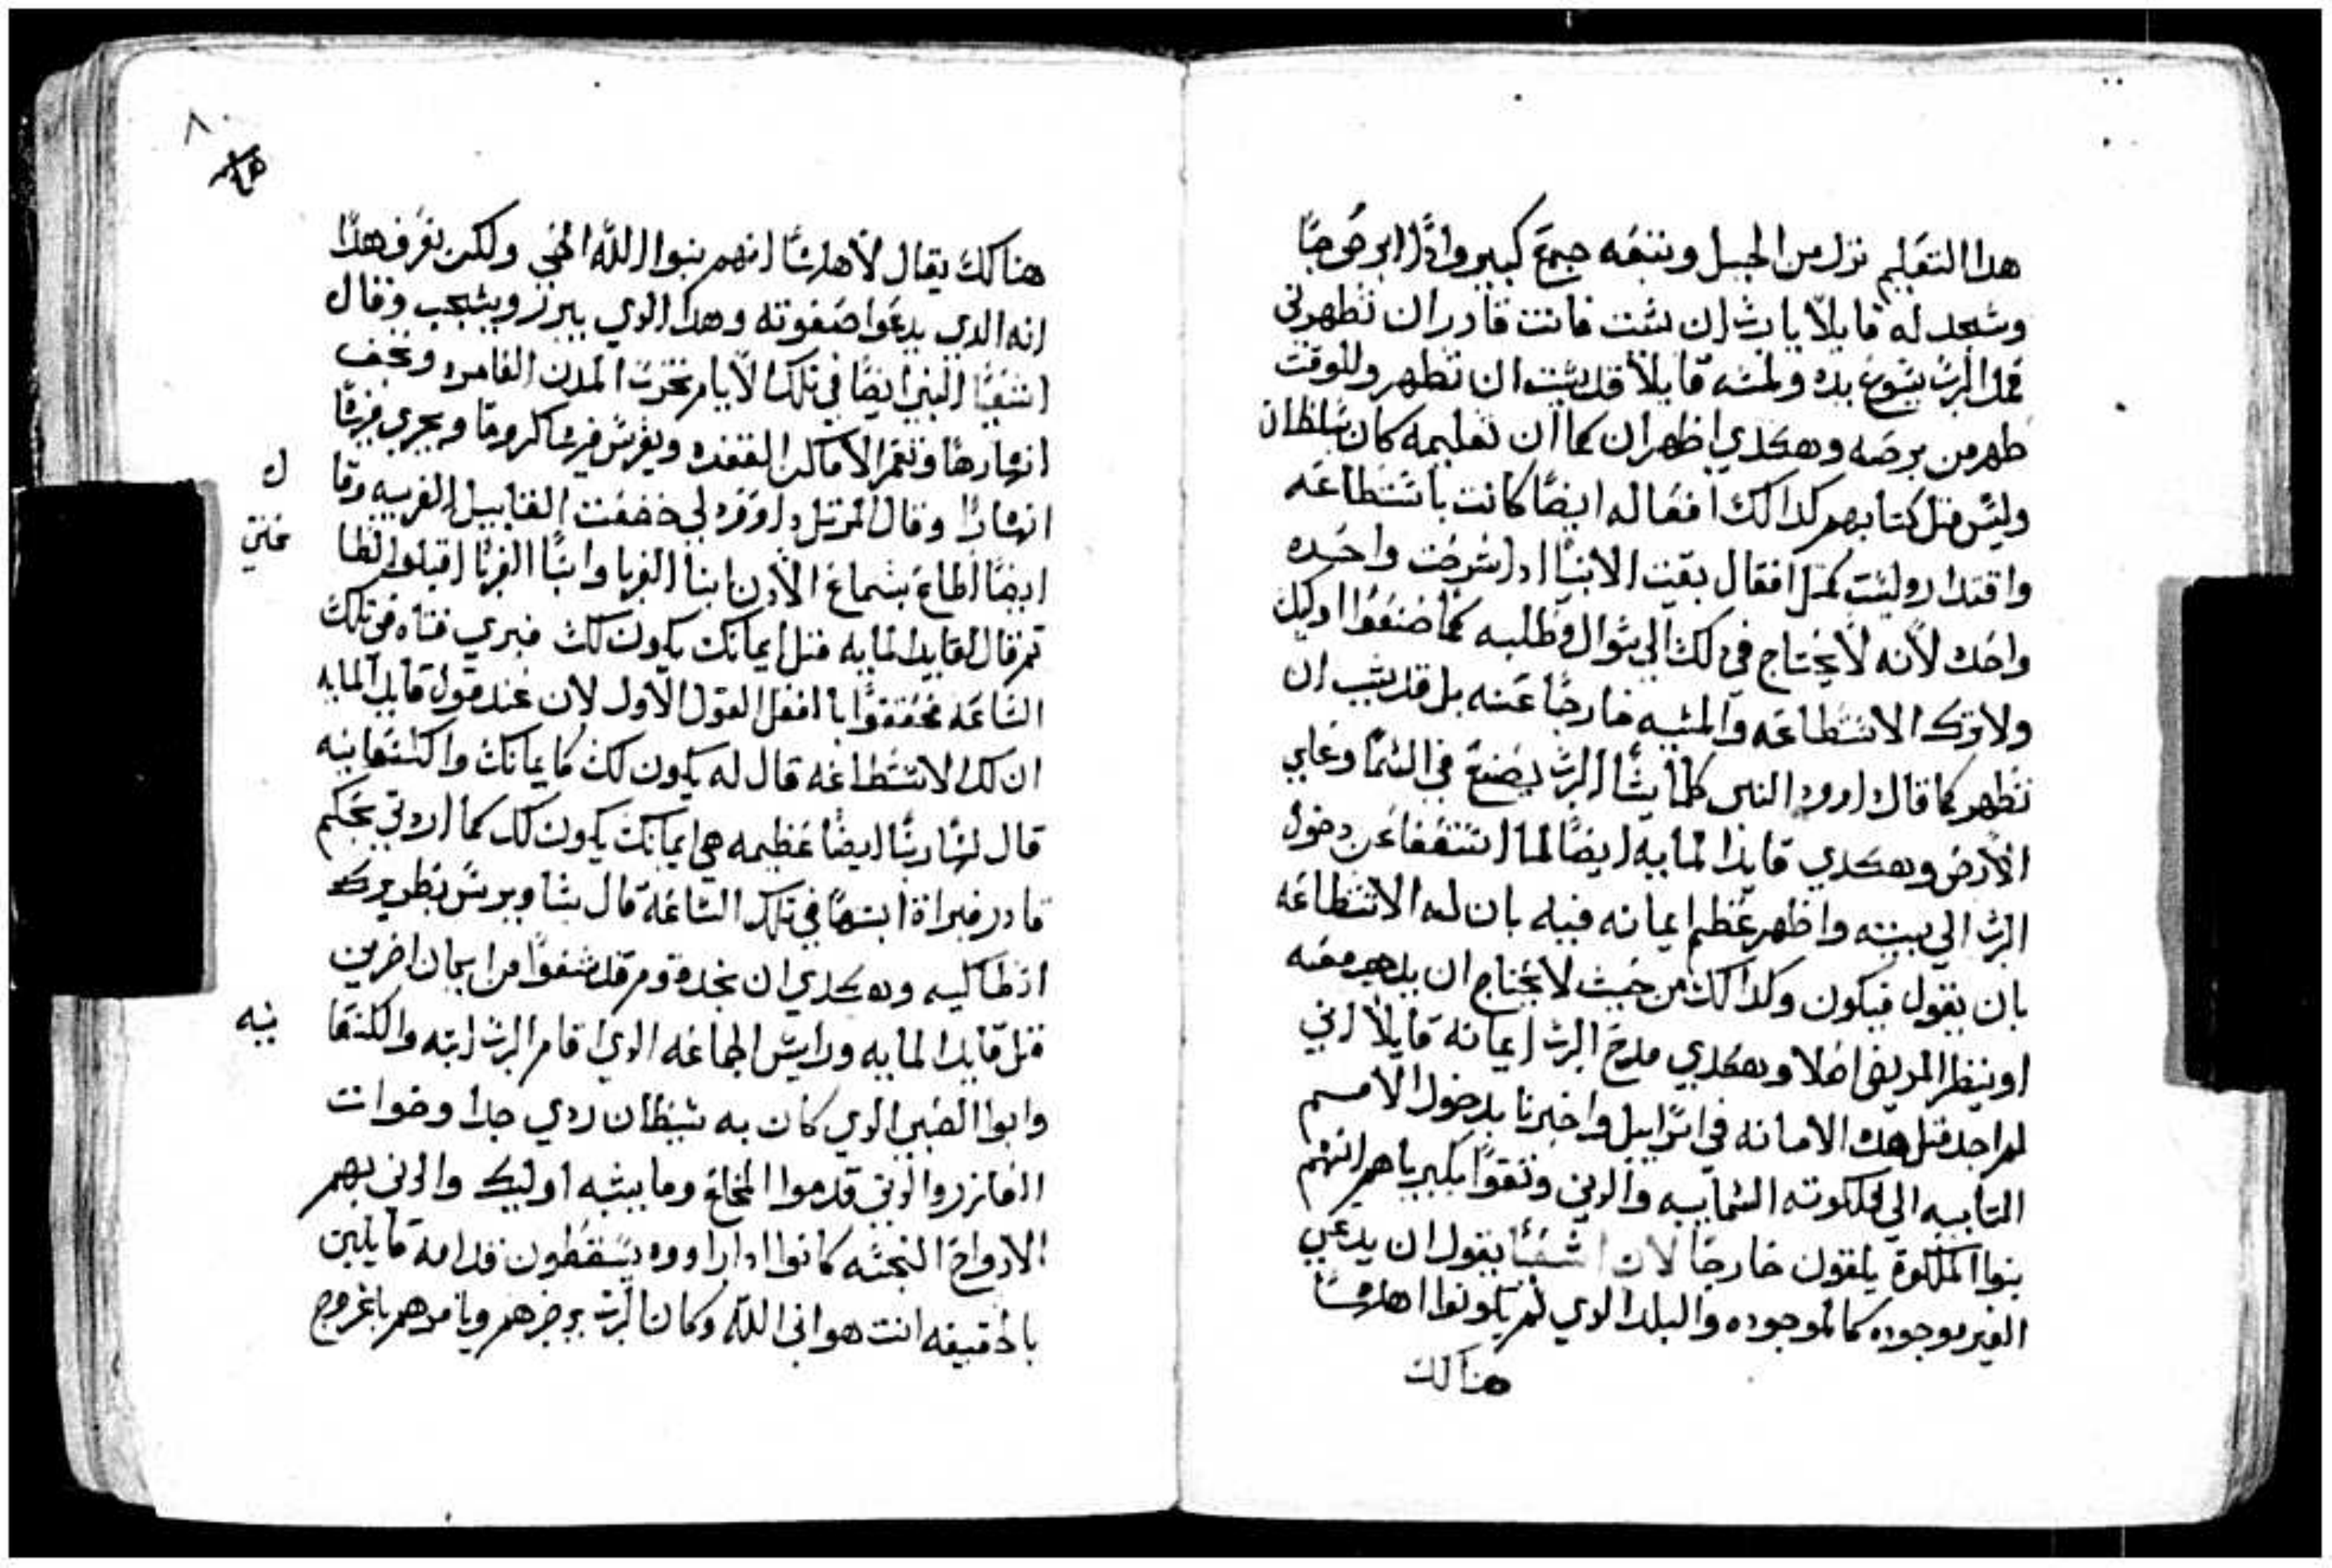 هدا التعليم نزل من الجبل وتتبعه جمع كبير وادا ابرص جا
وسجد له قايلاً يا رب ان شئت فانت قادر ان تطهرني
فمد الرب يسوع يده ولمسه قايلاً قد شيت ان تطهر وللوقت
طهر من برصه وهكدي اظهر ان كما ان تعليمه كان بسلطان
وليس مثل كتابهم كدالك افعاله ايضًا كانت باستطاعه
واقتدار وليست كمثل افعال بقيت الانبيا ادا شرحت واحده
واحده لانه لا يحتاج في لك الي سوال وطلبه كما صنعوا اوليك
ولا ترك الاستطاعه والمشيه خارجًا عنه بل قد يشب ان
تطهر كما قال داوود النبي كلما يشأ الرب يصنع في السما وعلي
الأرض وهكدي قايد المايه ايضًا لما استعفا عن دخول
الرب الي بيته واظهر عظم ايمانه فيه بان له الاستطاعه
بان يقول فيكون وكدالك من حيث لا يحتاج ان يدهب معه
او ينظر المريض اصلا وهكدي مدح الرب ايمانه قايلاً اني
لم اجد مثل هده الامانه في اسراييل واخبرنا بدخول الامم
التايبيه الي ملكوته السماييه والدين وثقوا بكبرياهم انهم
بنوا الملكوة يلقون خارجًا لان اشعيا يقول ان يدعي
الغير موجوده كالموجوده والبلد الدي لم يكونوا اهلها شبا
هنالك
٨٠
هنا كك يقال لأهلها انهم بنوا الله الحي ولكن نعرف هدا
انه الدي يدعوا صفوته وهدا الدي يبرر ويستجب وقال
اشعيا النبي ايضًا في تلك الأيام تخرب المدن العامره وتجف
انهارها وتعمر الاماكن القفره ويغرس فيها كروما ويجري فيها
انهارًا وقال المرتل داوود لي خضعت القبايل الغريبه وقا ل
ايضًا اطاع بسماع الأدن ابنا الغربا وابنا الغربا اقبلوا لطا عتي
تم قال لقايد المايه مثل ايمانك يكون لك فبري فتاه في تلك
الساعه فحققوا بالفعل القول الأول لان عند قول قايد المايه
ان لك الاستطاعه قال له يكون لك كايمانك والكنعانيه
قال لها ربنا ايضًا عظيمه هي ايمانك يكون لك كما اردتي بحكم
قادر فبراة ابنتها في تلك الساعه قال ساويرس بطريرك
انطاكيه وهكدي ان نجد قوم قد شفوا من ايمان اخرين
مثل قايد المايه ورايس الجماعه الدي اقام الرب ابنته والكنعا نيه
وابوا الصبي الدي كان به شيطان ردي جدا واخوات
العازر والدين قدموا المخلع وما يشبه اوليك والدي بهم
الارواح النجسه كانوا ادا راووه يسقطون قدامه قايلين
بالحقيقه انت هو ابن الله وكان الرب يزجرهم ويامرهم بالخروج